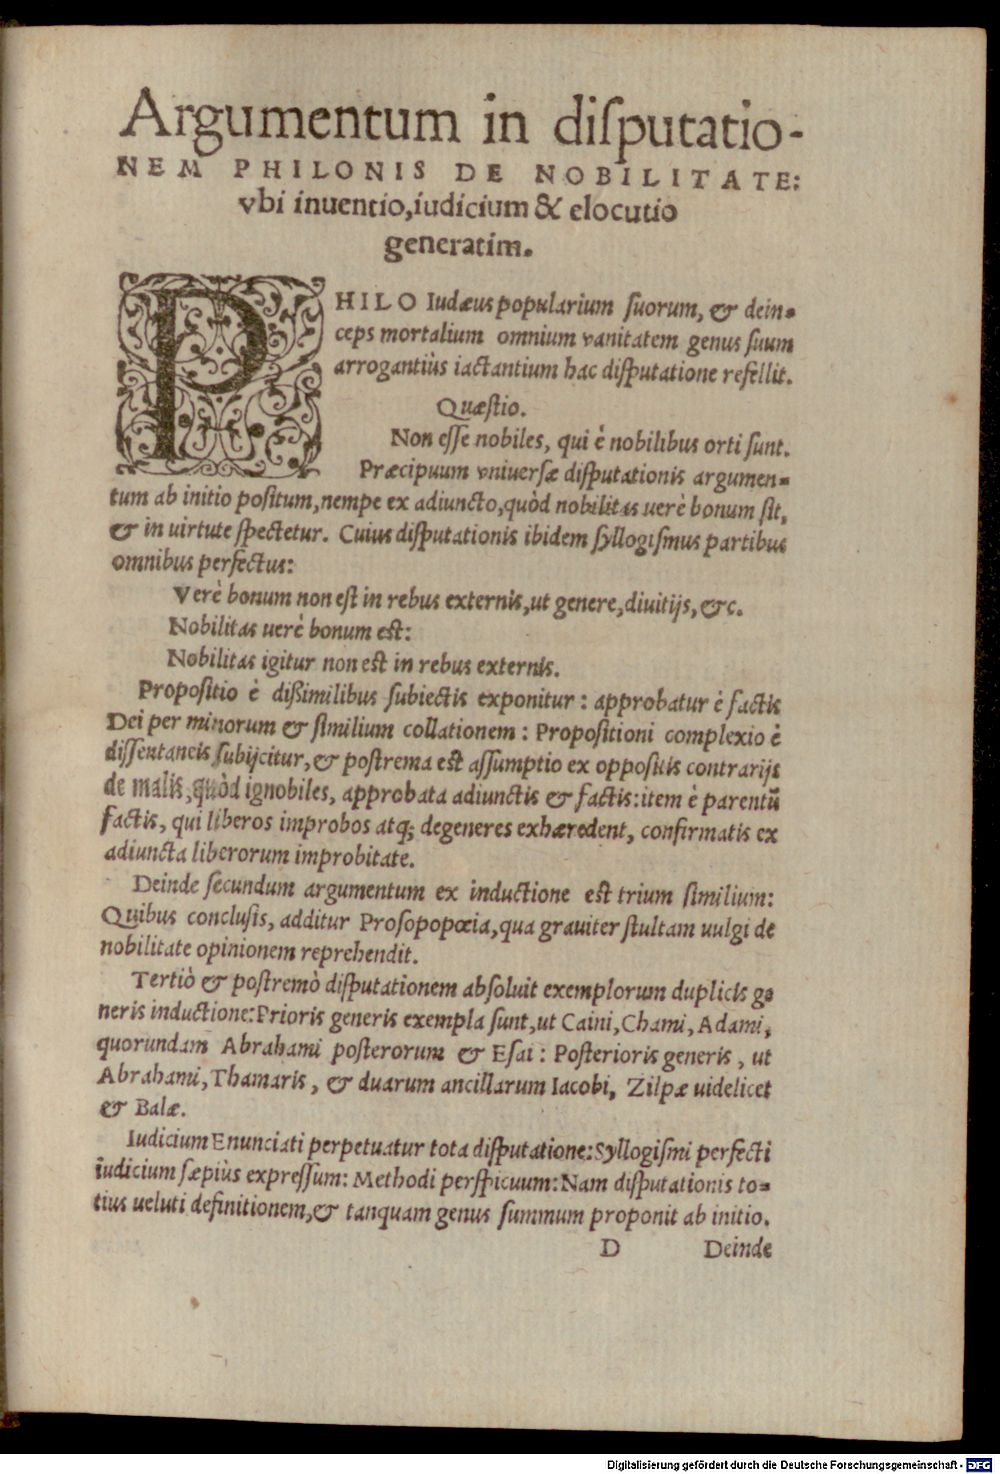 Argumentum in diſputatio-
NEM PHILONIS DE NOBILITATE:
vbi inuentio, iudicium & elocutio
generatim.
PHILO Iudæus popularium ſuorum, & dein-
ceps mortalium omnium vanitatem genus ſuum
arrogantiùs iactantium hac diſputatione refellit.
Quæſtio.
Non eſſe nobiles, qui è nobilibus orti ſunt.
Præcipuum vniuerſæ diſputationis argumen-
tum ab initio poſitum, nempe ex adiuncto, quòd nobilitas uerè bonum ſit,
& in uirtute ſpectetur. Cuius diſputationis ibidem ſyllogiſmus partibus
omnibus perfectus:
Verè bonum non eſt in rebus externis, ut genere, diuitijs, &c.
Nobilitas uerè bonum eſt:
Nobilitas igitur non eſt in rebus externis.
Propoſitio è dißimilibus ſubiectis exponitur: approbatur è factis
Dei per minorum & ſimilium collationem: Propoſitioni complexio è
diſſentaneis ſubijcitur, & poſtrema eſt aſſumptio ex oppoſitis contrarijs
de malis, quòd ignobiles, approbata adiunctis & factis: item è parentū
factis, qui liberos improbos atq; degeneres exhæredent, confirmatis ex
adiuncta liberorum improbitate.
Deinde ſecundum argumentum ex inductione eſt trium ſimilium:
Quibus concluſis, additur Proſopopœia, qua grauiter ſtultam uulgi de
nobilitate opinionem reprehendit.
Tertiò & poſtremò diſputationem abſoluit exemplorum duplicis ge
neris inductione: Prioris generis exempla ſunt, ut Caini, Chami, Adami,
quorundam Abrahami poſterorum & Eſai: Poſterioris generis, ut
Abrahami, Thamaris, & duarum ancillarum Iacobi, Zilpæ uidelicet
& Balæ.
Iudicium Enunciati perpetuatur tota diſputatione: Syllogiſmi perfecti
iudicium ſæpiùs expreſſum: Methodi perſpicuum: Nam diſputationis to-
tius ueluti definitionem, & tanquam genus ſummum proponit ab initio.
D Deinde
Digitalisierung gefördert durch die Deutsche Forschungsgemeinschaft - DFG